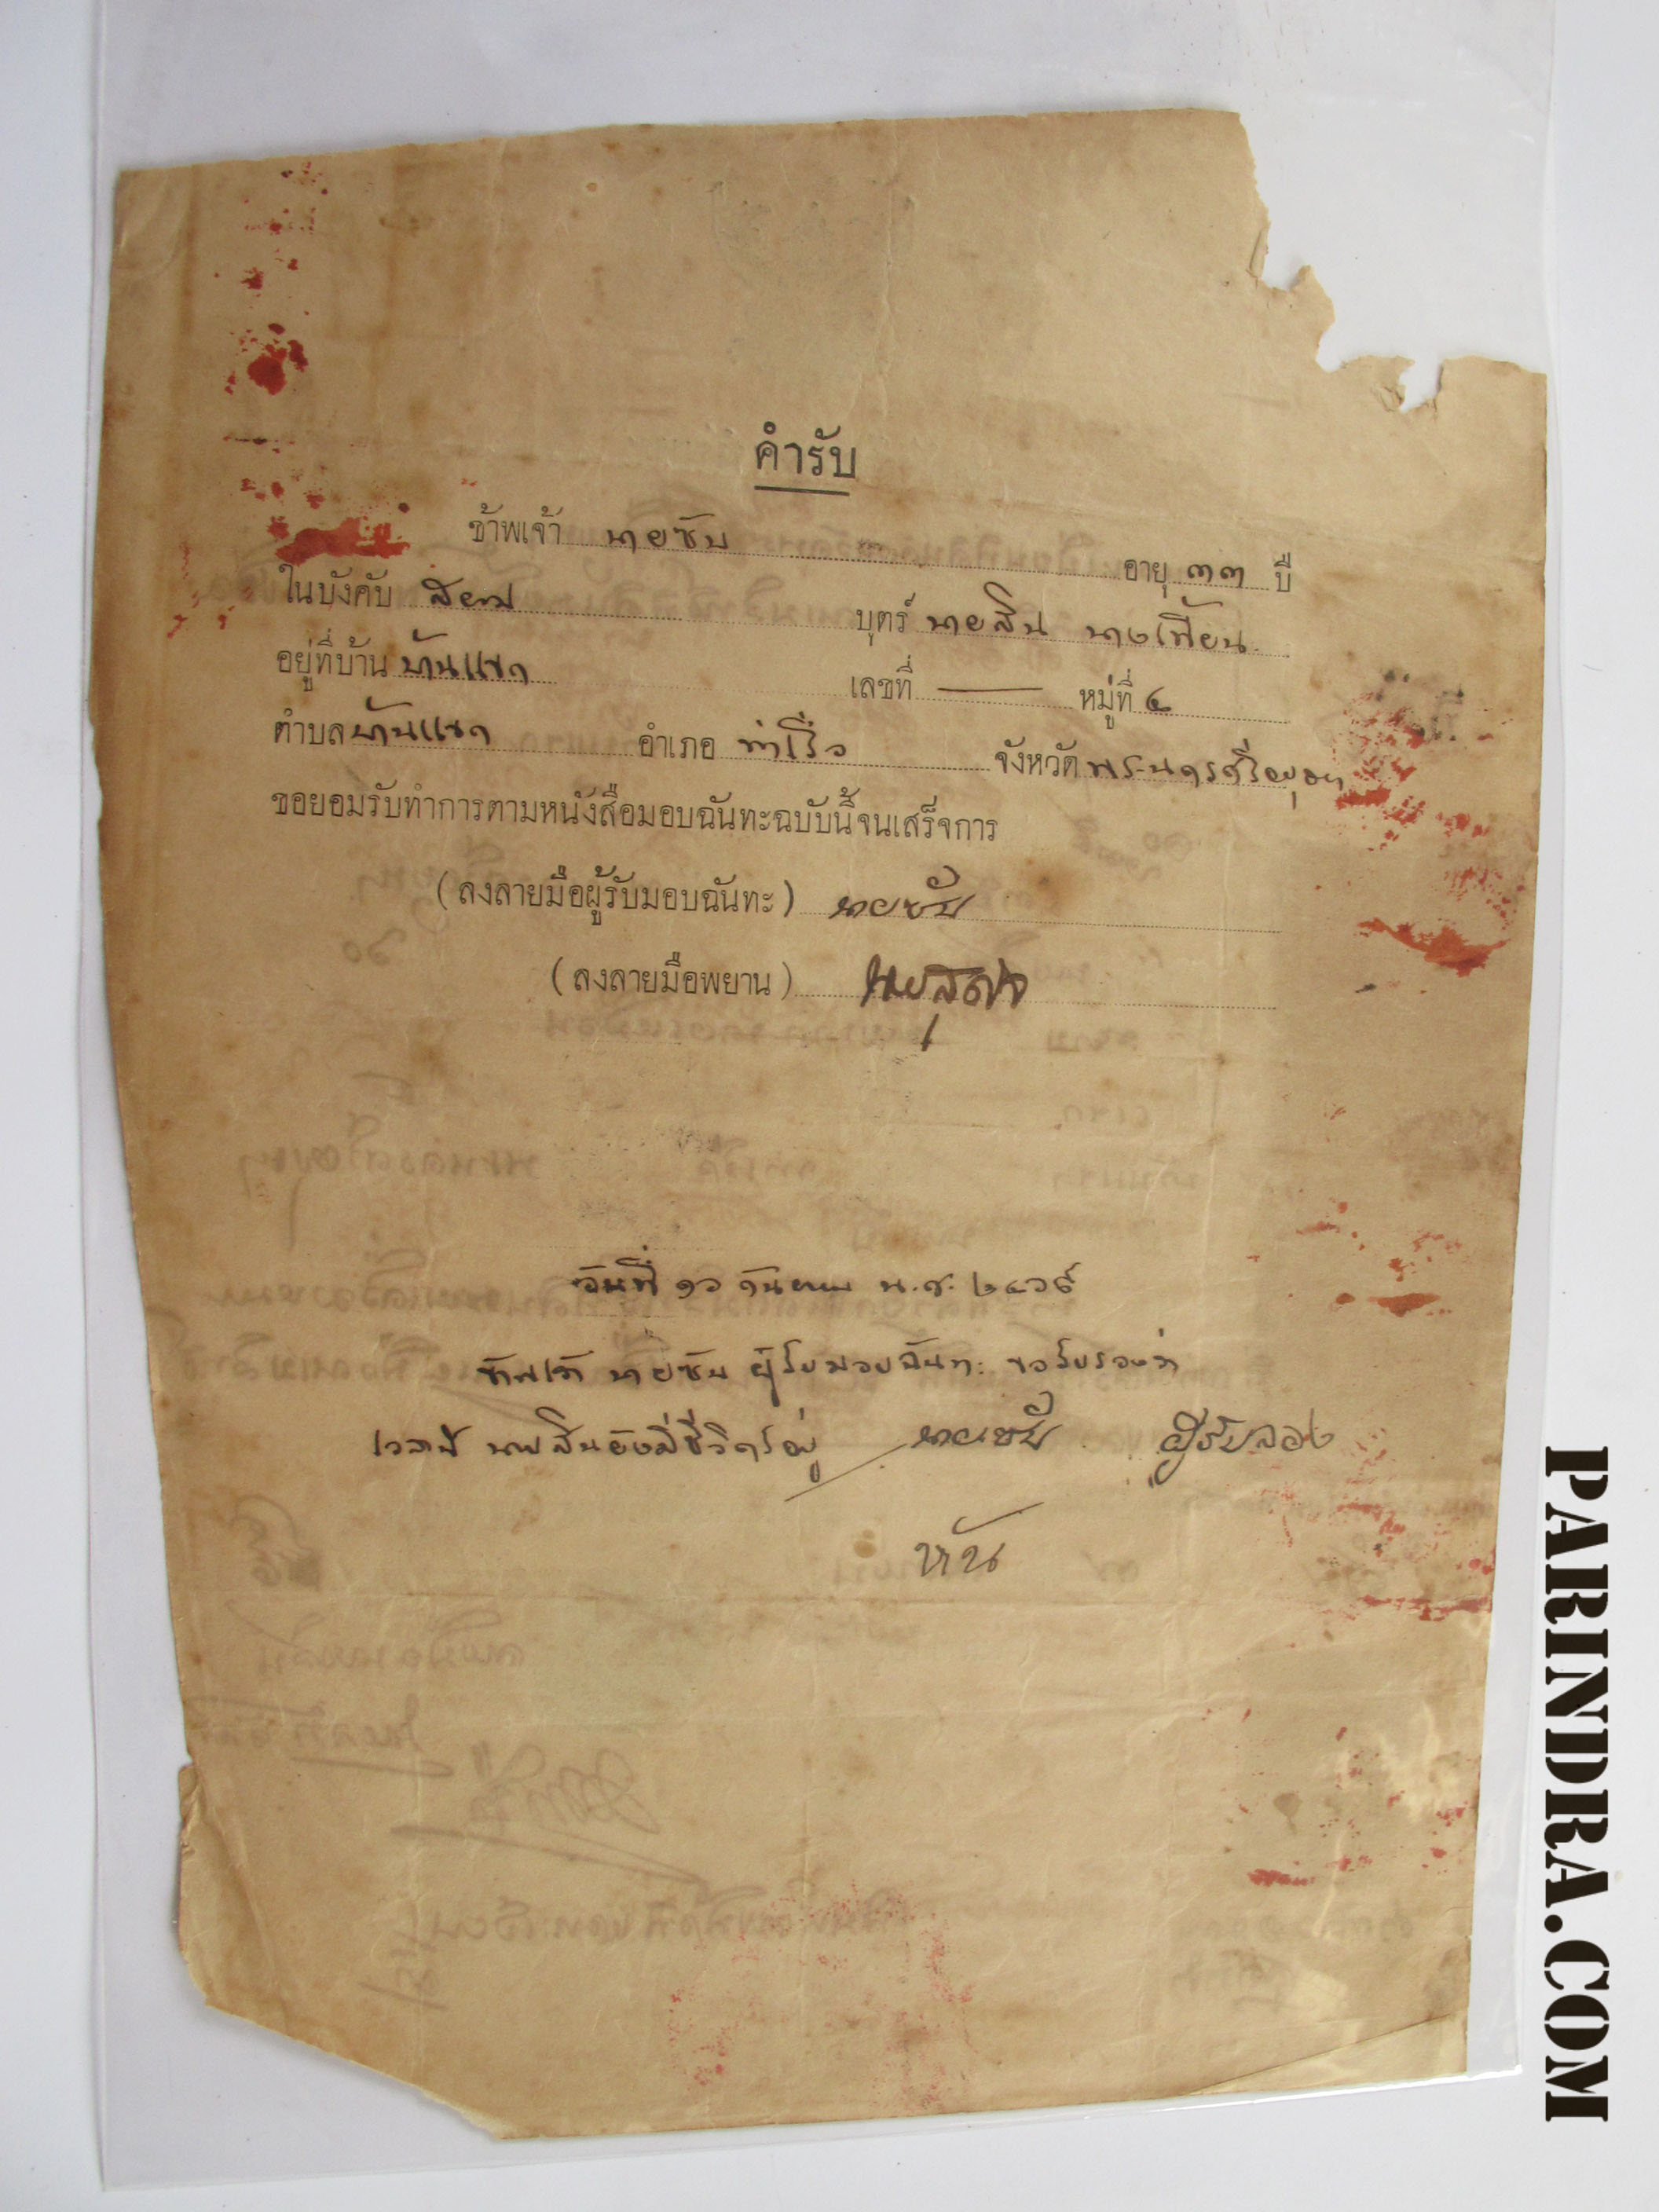 คำรับ
ข้าพเจ้า นายชับ อายุ ๓๓ ปี
ในบังคับ สยาม บุตร์ นายสิน นางเพี้ยน
อยู่ที่บ้าน บ้านแขก เลขที่ — หมู่ที่ ๔
ตำบล บ้านแขก อำเภอ ท่าเรือ จังหวัด พระนครศรีอยุธยา
ขอยอมรับทำการตามหนังสือมอบฉันทะฉบับนี้จนเสร็จการ
(ลงลายมือผู้รับมอบฉันทะ) นายชับ
(ลงลายมือพยาน)
วันที่ ๑๐ กันยายน พ.ศ.
ข้าพเจ้า นายชับ ผู้รับมอบฉันทะ ขอรับรองว่า
เวลานี้ นายสินยังมีชีวิตร์อยู่ นายชับ ผู้รับลอง
PARINDRA.COM